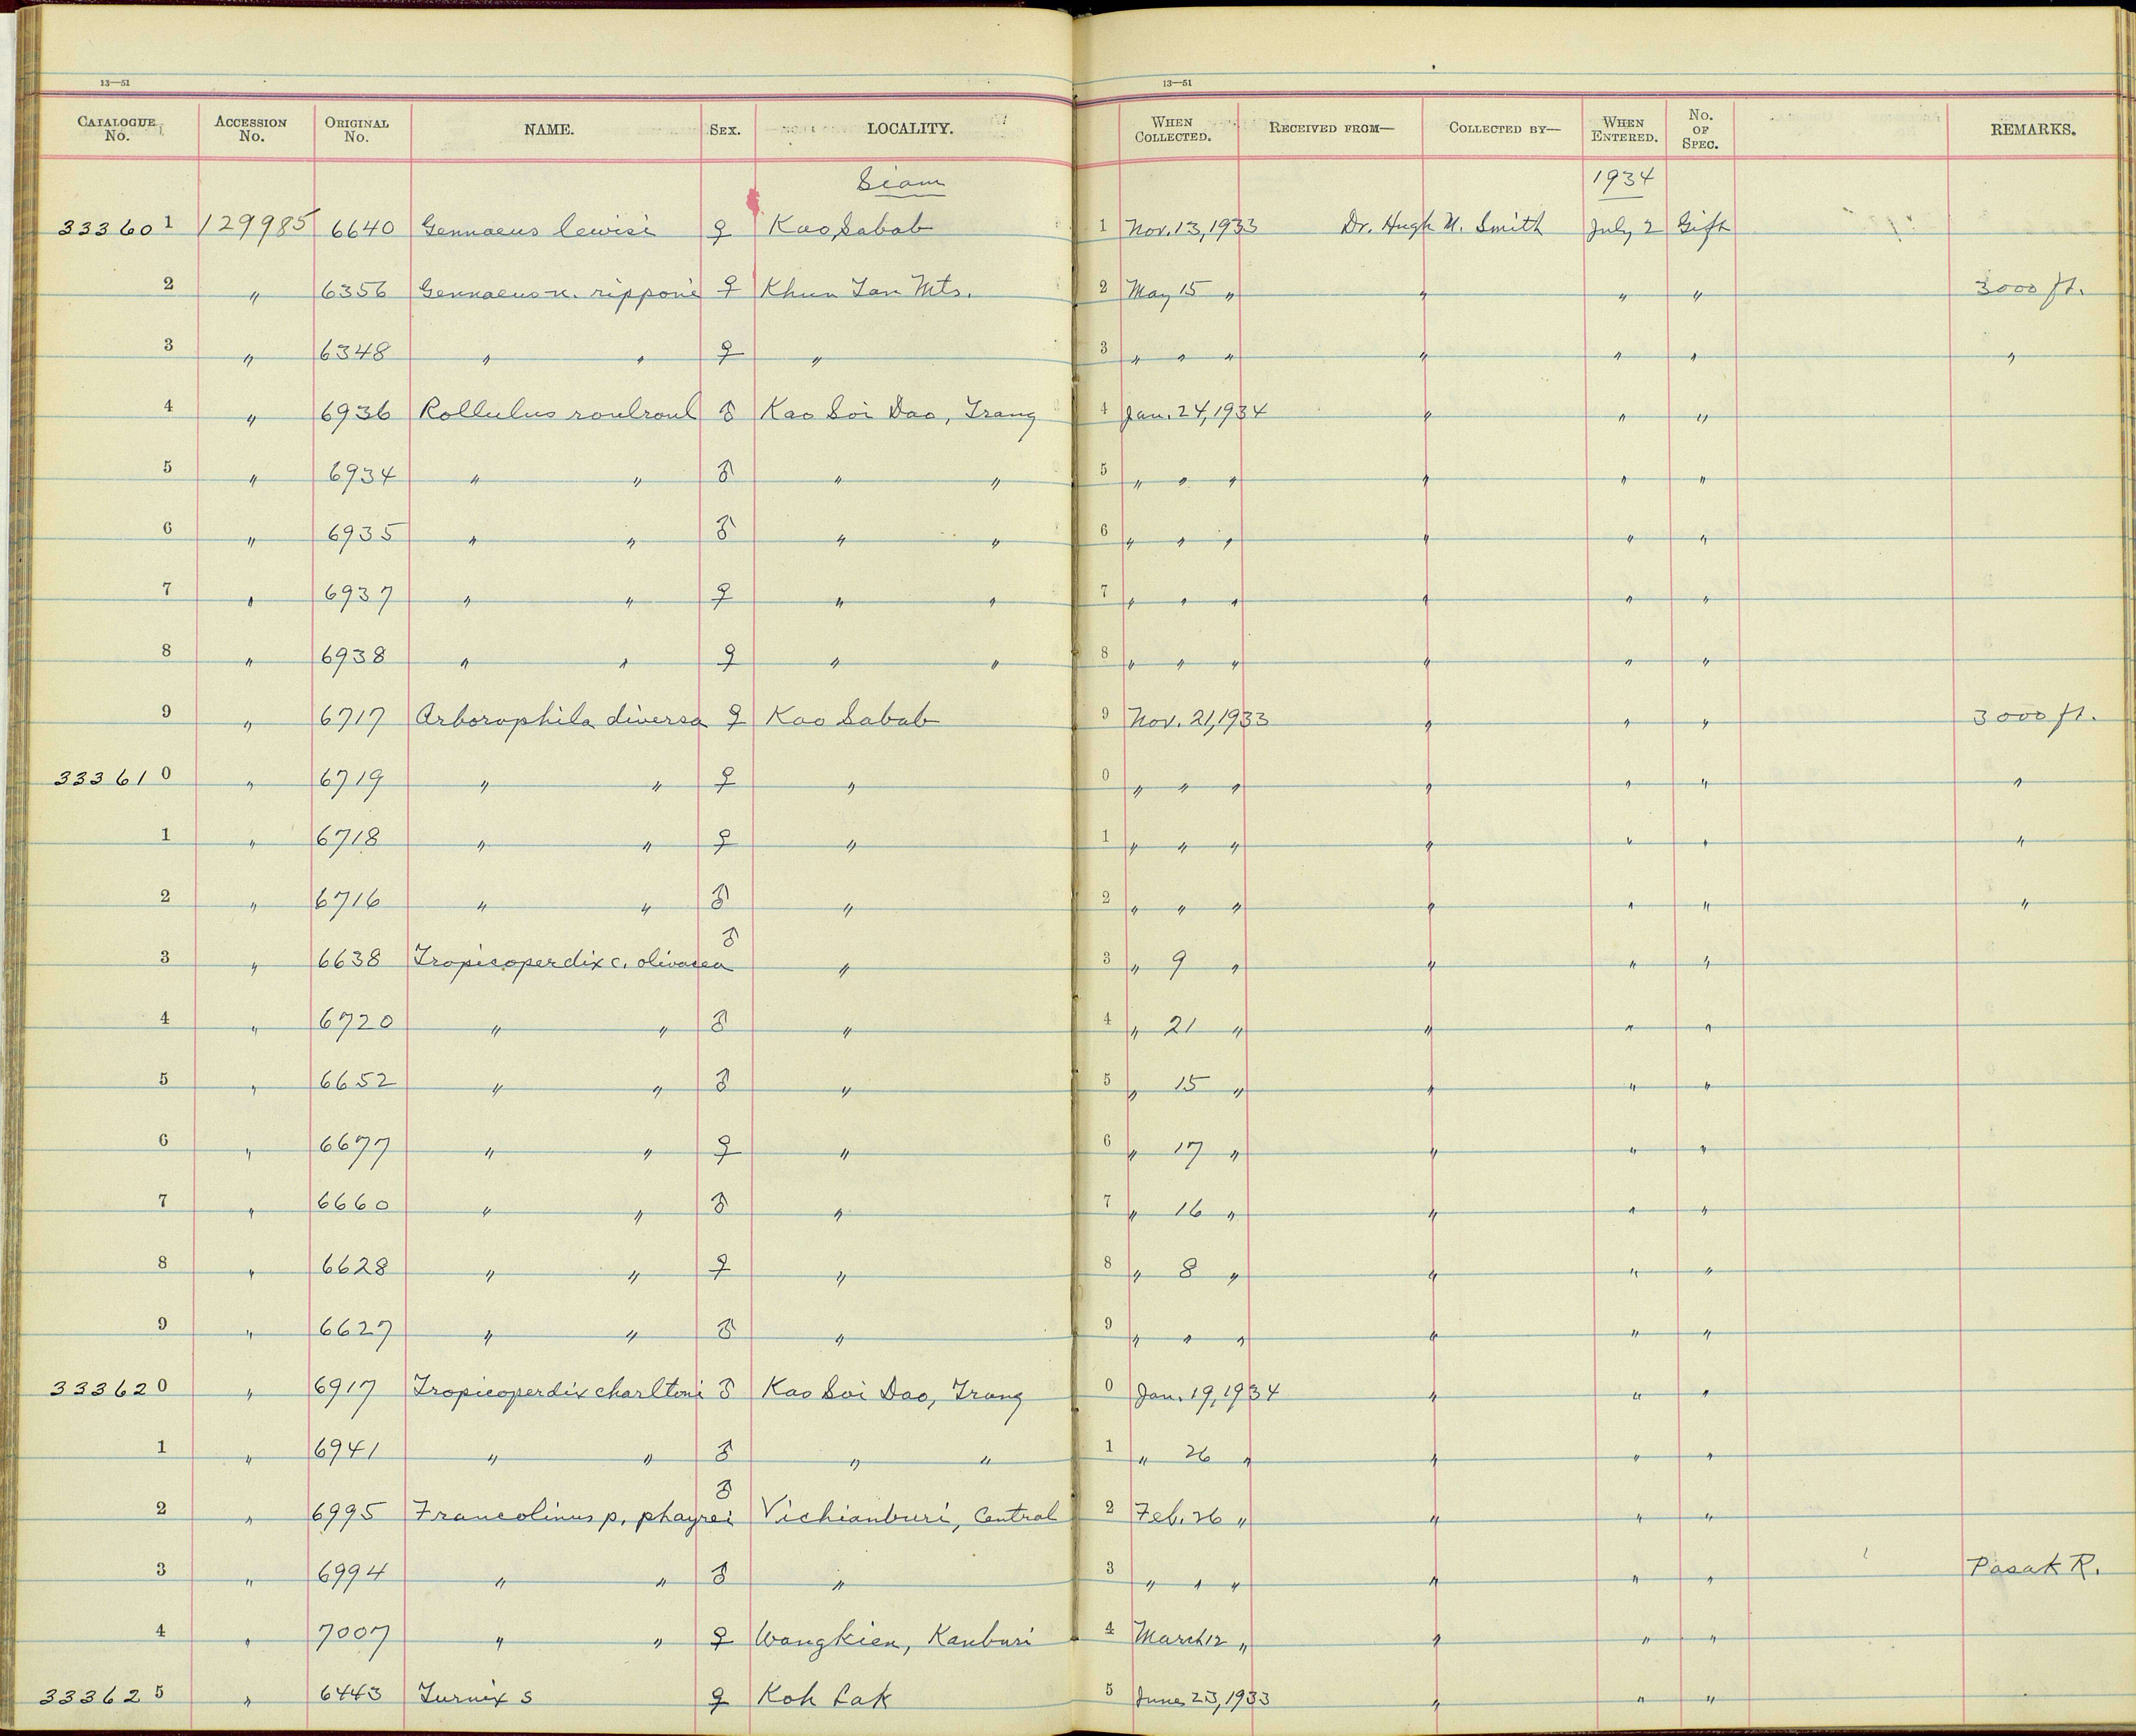 13—51 13—51
CATALOGUE No. ACCESSION No. ORIGINAL No. NAME. SEX. LOCALITY. WHEN COLLECTED. RECEIVED FROM— COLLECTED BY— WHEN ENTERED. No. OF SPEC. REMARKS.
Siam 1934
33360 1 129985 6640 Gennaeus lewisi ♀ Kao Sabab 1 Nov. 13, 1933 Dr. Hugh M. Smith July 2 Gift
2 " 6356 Gennaeus n. ripponi ♀ Khun Tan Mts. 2 May 15 " " " " 3000 ft.
3 " 6348 " " ♀ " 3 " " " " " " "
4 " 6936 Rollulus roulroul ♂ Kao Soi Dao, Trang 4 Jan. 24, 1934 " " "
5 " 6934 " " ♂ " " 5 " " " " " "
6 " 6935 " " ♂ " " 6 " " " " " "
7 " 6937 " " ♀ " " 7 " " " " " "
8 " 6938 " " ♀ " " 8 " " " " " "
9 " 6717 Arborophila diversa ♀ Kao Sabab 9 Nov. 21, 1933 " " " 3000 ft.
33361 0 " 6719 " " ♀ " 0 " " " " " " "
1 " 6718 " " ♀ " 1 " " " " " " "
2 " 6716 " " ♂ " 2 " " " " " " "
3 " 6638 Tropicoperdix c. olivacea ♂ " 3 " 9 " " " "
4 " 6720 " " ♂ " 4 " 21 " " " "
5 " 6652 " " ♂ " 5 " 15 " " " "
6 " 6677 " " ♀ " 6 " 17 " " " "
7 " 6660 " " ♂ " 7 " 16 " " " "
8 " 6628 " " ♀ " 8 " 8 " " " "
9 " 6627 " " ♂ " 9 " " " " " "
33362 0 " 6917 Tropicoperdix charltoni ♂ Kao Soi Dao, Trang 0 Jan. 19, 1934 " " "
1 " 6941 " " ♂ " " 1 " 26 " " " "
2 " 6995 Francolinus p. phayrei ♂ Vichianburi, Central 2 Feb. 26 " " " "
3 " 6994 " " ♂ " 3 " " " " " " Pasak R.
4 " 7007 " " ♀ Wangkien, Kanburi 4 March 12 " " " "
33362 5 " 6443 Turnix s ♀ Koh Lak 5 June 23, 1933 " " "